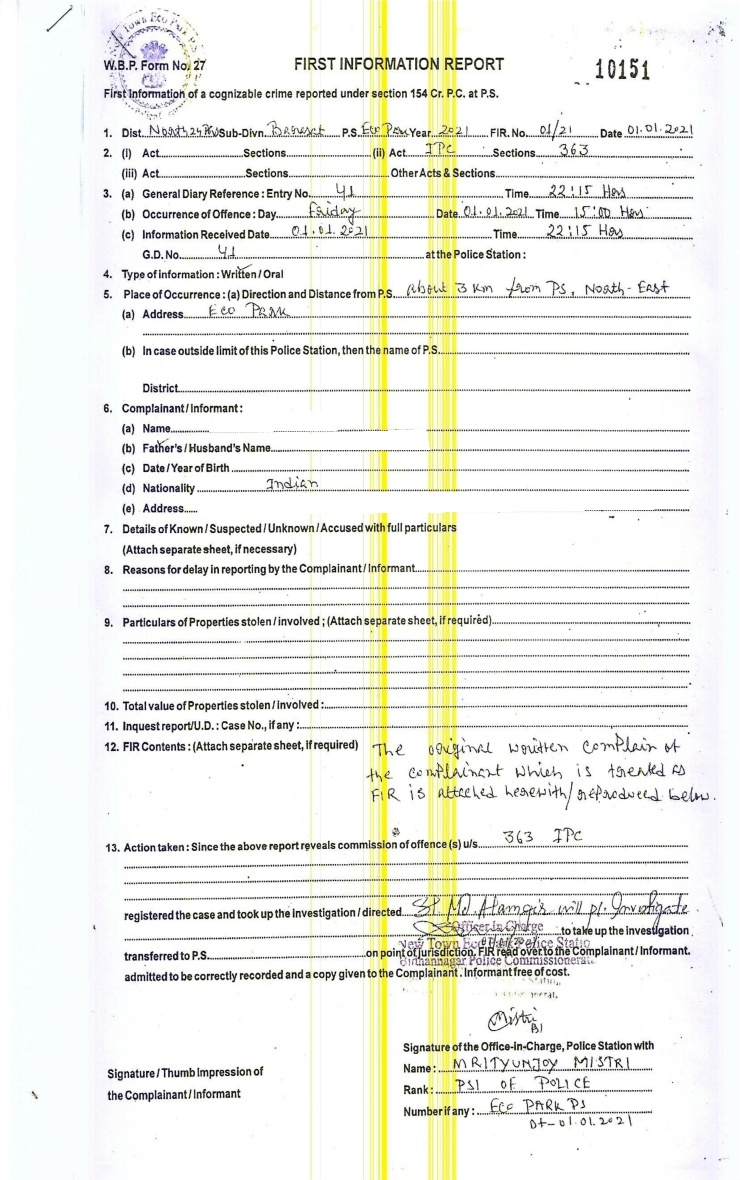 Town Eco Park P.S.
W.B.P. Form No. 27
FIRST INFORMATION REPORT
10151
First Information of a cognizable crime reported under section 154 Cr. P.C. at P.S.
1. Dist. North 24 Sub-Divn. Barasat P.S. Eco Park Year 2021 FIR. No. 01/21 Date 01.01.2021
2. (i) Act Sections (ii) Act IPC Sections 363
(iii) Act Sections Other Acts & Sections
3. (a) General Diary Reference : Entry No. 41 Time 22:15 Hrs
(b) Occurrence of Offence : Day Friday Date 01.01.2021 Time 15:00 Hrs
(c) Information Received Date 01.01.2021 Time 22:15 Hrs
G.D. No. 41 at the Police Station :
4. Type of information : Written / Oral
5. Place of Occurrence : (a) Direction and Distance from P.S. About 3 Km from PS, North-East
(a) Address Eco Park
(b) In case outside limit of this Police Station, then the name of P.S.
District
6. Complainant / Informant :
(a) Name
(b) Father's / Husband's Name
(c) Date / Year of Birth
(d) Nationality Indian
(e) Address
7. Details of Known / Suspected / Unknown / Accused with full particulars
(Attach separate sheet, if necessary)
8. Reasons for delay in reporting by the Complainant / Informant
9. Particulars of Properties stolen / involved ; (Attach separate sheet, if required)
10. Total value of Properties stolen / involved :
11. Inquest report/U.D. : Case No., if any :
12. FIR Contents : (Attach separate sheet, if required) The original written complain of
the complainant which is treated as
FIR is attached herewith/reproduced below.
13. Action taken : Since the above report reveals commission of offence (s) u/s. 363 IPC
registered the case and took up the investigation / directed SI Md Alamgir will pl. Investigate
Officer-in-Charge
to take up the investigation
New Town Eco Park Police Station
transferred to P.S. on point of jurisdiction. FIR read over to the Complainant / Informant.
Bidhannagar Police Commissionerate
admitted to be correctly recorded and a copy given to the Complainant . Informant free of cost.
Mistri
Signature of the Office-in-Charge, Police Station with
Name : MRITYUNJOY MISTRI
Signature / Thumb Impression of
Rank : PSI OF POLICE
the Complainant / Informant
Number if any : ECO PARK PS
Dt- 01.01.2021